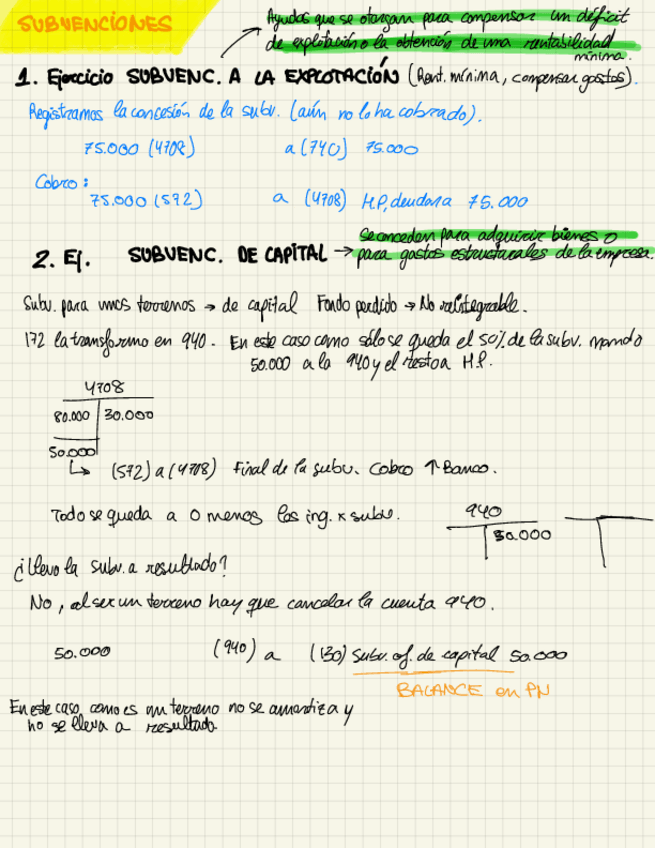 SUBVENCIONES
Ayudas que se otorgan para compensar un déficit
de explotación o la obtención de una rentabilidad
mínima.
1. Ejercicio SUBVENC. A LA EXPLOTACIÓN (Rent. mínima, compensar gastos).
Registramos la concesión de la subv. (aún no lo ha cobrado).
75.000 (4708) a (740) 75.000
Cobro:
75.000 (572) a (4708) H.P, deudora 75.000
2. Ej. SUBVENC. DE CAPITAL → Se conceden para adquirir bienes o
para gastos estructurales de la empresa.
Subv. para unos terrenos → de capital Fondo perdido → No reintegrable.
172 la transformo en 940. En este caso como sólo se queda el 50% de la subv. mando
50.000 a la 940 y el resto a H.P.
4708
80.000 30.000
50.000
(572) a (4708) Final de la subv. Cobro ↑ Banco.
Todo se queda a 0 menos los ing. x subv.
940
50.000
¿Llevo la subv. a resultado?
No, al ser un terreno hay que cancelar la cuenta 940.
50.000 (940) a (130) Subv. of. de capital 50.000
BALANCE en PN
En este caso, como es un terreno no se amortiza y
no se lleva a resultado